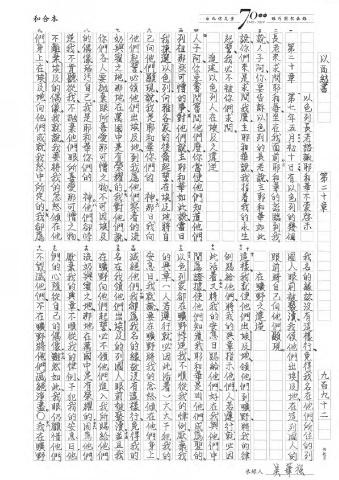 和合本
以西結書 第二十章 九百九十二
以色列長老諮詢耶和華不蒙啟示
第二十章 第七年五月初十日有以色列的幾個
長老來求問耶和華坐在我面前耶和華的話臨到我
說人子阿你要告訴以色列的長老說主耶和華如此
說你們來是求問我麼主耶和華說我指着我的永生
起誓我必不被你們求問
追述以色列人在埃及之違逆
人子阿你要審問審問他們麼你當使他們知道他們
列祖那些可憎的事對他們說主耶和華如此說當日
我揀選以色列向雅各家的後裔起誓在埃及地將自
己向他們顯現說我是耶和華你們的 神那日我向
他們起誓必領他們出埃及地到我為他們察看的流
奶與蜜之地那地在萬國中是有榮耀的我對他們說
你們各人要拋棄眼所喜愛那可憎之物不可因埃及
的偶像玷污自己我是耶和華你們的 神他們卻悖
逆我不肯聽從我不拋棄他們眼所喜愛那可憎之物
不離棄埃及的偶像我就說我要將我的忿怒傾在他
們身上在埃及地向他們成就我怒中所定的我卻為
我名的緣故沒有這樣行免得我名在他們所住的列
國人眼前被褻瀆我領他們出埃及地在這列國人的
眼前將自己向他們顯現
在曠野之違逆
這樣我就使他們出埃及地領他們到曠野將我的律
例賜給他們將我的典章指示他們人若遵行就必因
此活着又將我的安息日賜給他們好在我與他們中
間為證據使他們知道我耶和華是叫他們成為聖的
以色列家卻在曠野悖逆我不順從我的律例厭棄我
的典章(人若遵行就必因此活着)大大干犯我的
安息日我就說要在曠野將我的忿怒傾在他們身上
滅絕他們我卻為我名的緣故沒有這樣行免得我的
名在我領他們出埃及的列國人眼前被褻瀆並且我
在曠野向他們起誓必不領他們進入我所賜給他們
流奶與蜜之地那地在萬國中是有榮耀的因為他們
厭棄我的典章不順從我的律例干犯我的安息日他
們的心隨從自己的偶像雖然如此我眼仍顧惜他們
不毀滅他們不在曠野將他們滅絕淨盡我在曠野